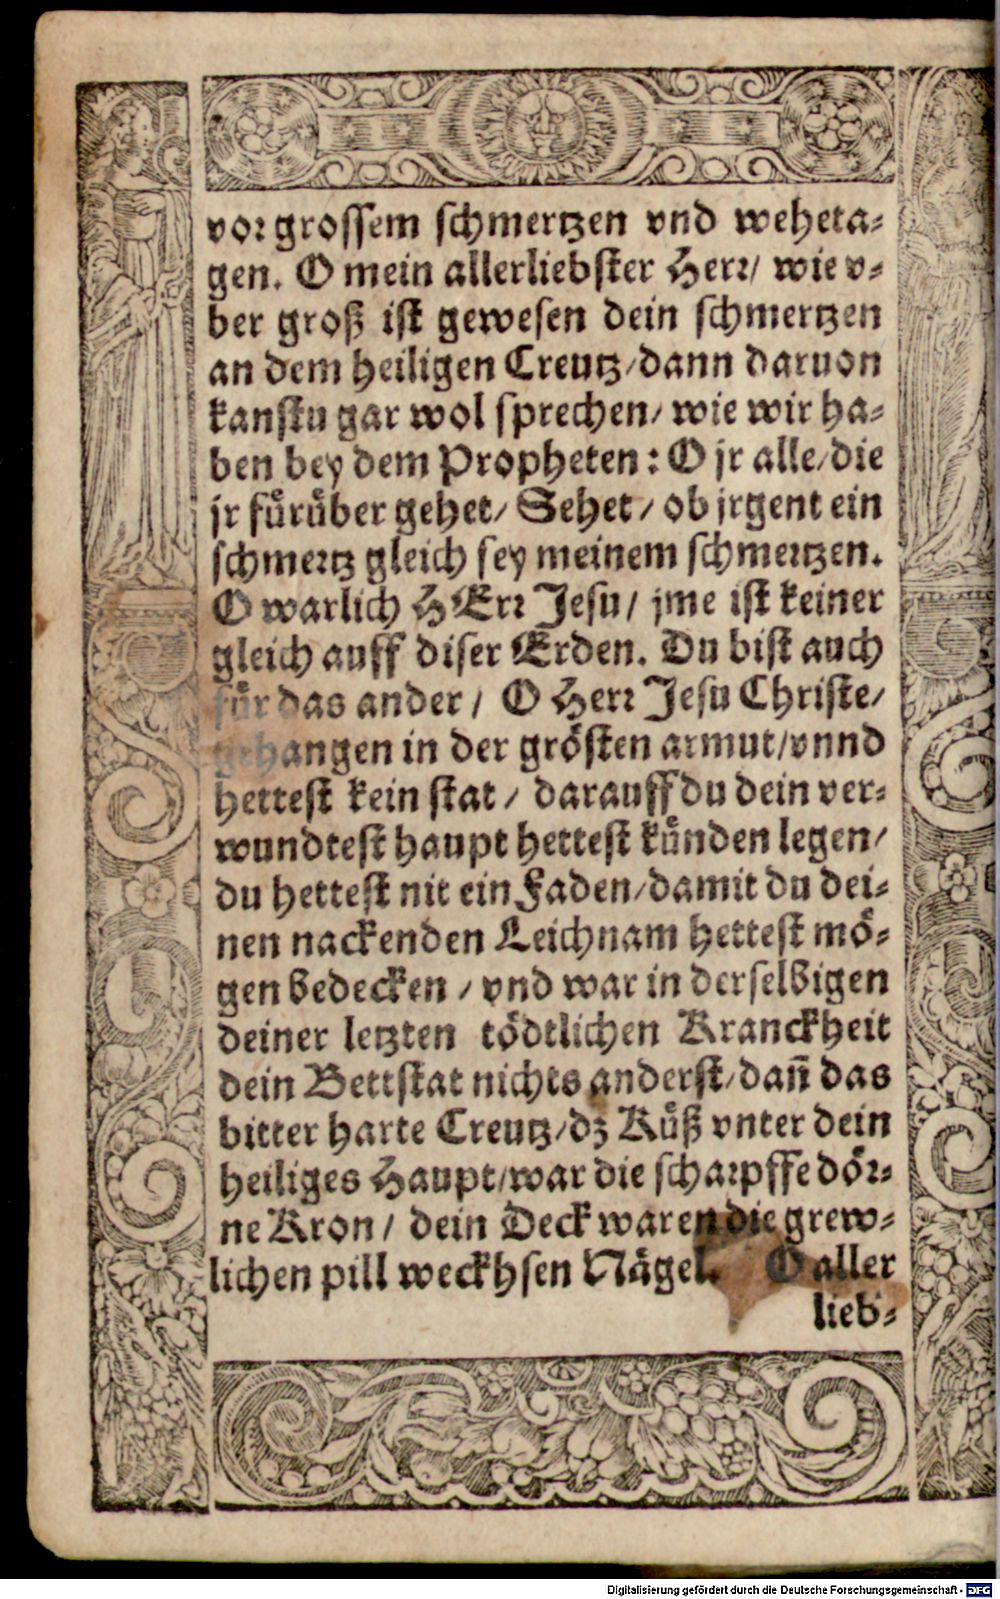 vor grossem schmertzen vnd weheta⸗
gen. O mein allerliebster Herr/ wie v⸗
ber groß ist gewesen dein schmertzen
an dem heiligen Creutz/dann daruon
kanstu gar wol sprechen/ wie wir ha⸗
ben bey dem Propheten: O jr alle/die
jr fürüber gehet/ Sehet/ ob jrgent ein
schmertz gleich sey meinem schmertzen.
O warlich HErr Jesu/ jme ist keiner
gleich auff diser Erden. Du bist auch
für das ander/ O Herr Jesu Christe/
gehangen in der grösten armut/vnnd
hettest kein stat/ darauff du dein ver⸗
wundtest haupt hettest künden legen/
du hettest nit ein Faden/damit du dei⸗
nen nackenden Leichnam hettest mö⸗
gen bedecken/ vnd war in derselbigen
deiner letzten tödtlichen Kranckheit
dein Bettstat nichts anderst/dañ das
bitter harte Creutz/dz Küß vnter dein
heiliges Haupt/war die scharpffe dör⸗
ne Kron/ dein Deck waren die grew⸗
lichen pill weckhsen Nägel. O aller
lieb⸗
Digitalisierung gefördert durch die Deutsche Forschungsgemeinschaft - DFG